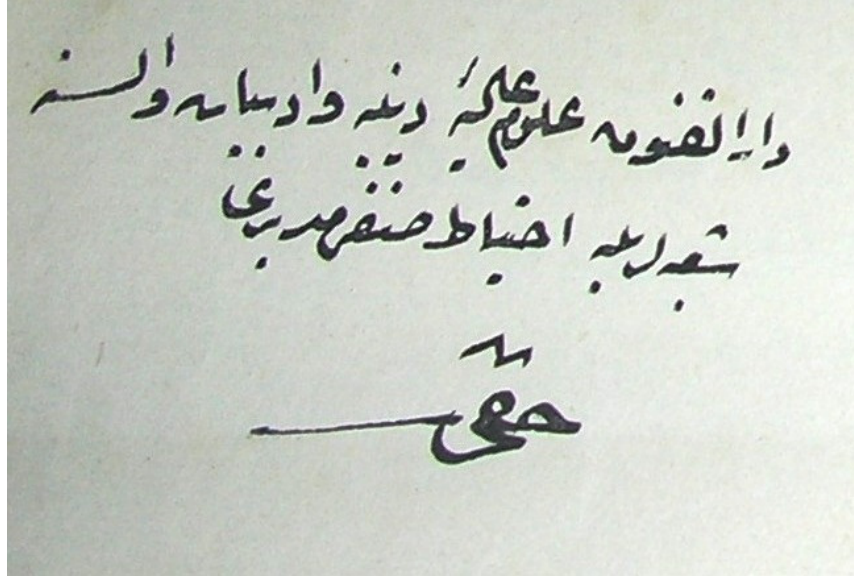 دار الفنون علوم عاليهٔ دينيه وادبيات والسنه
شعبه لريله احتياط صنفى مديرى
حقى